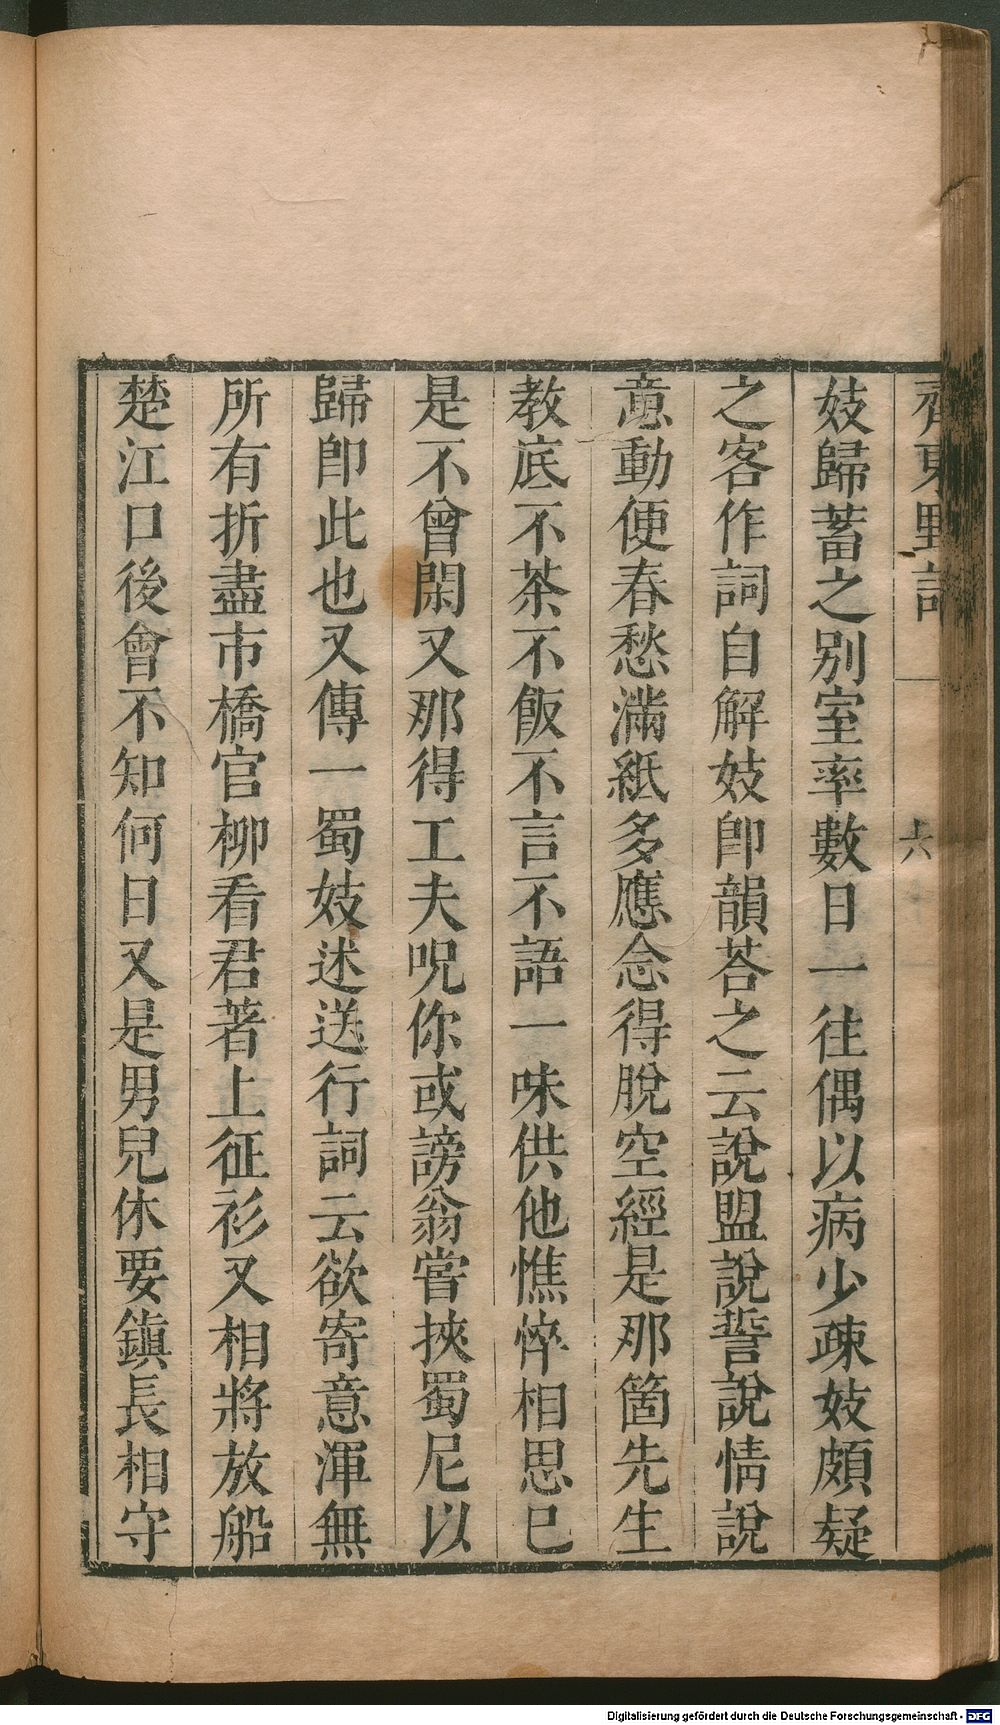 齊東野語
六
妓歸蓄之别室率數日一往偶以病少疎妓頗疑
之客作詞自解妓卽韻荅之云說盟說誓說情說
意動便春愁滿紙多應念得脫空經是那箇先生
教底不茶不飯不言不語一味供他憔悴相思已
是不曾閑又那得工夫呪你或謗翁嘗挾蜀尼以
歸卽此也又傳一蜀妓述送行詞云欲寄意渾無
所有折盡市橋官柳看君著上征衫又相將放船
楚江口後會不知何日又是男兒休要鎭長相守
Digitalisierung gefördert durch die Deutsche Forschungsgemeinschaft - DFG